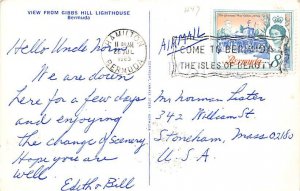 VIEW FROM GIBBS HILL LIGHTHOUSE
Bermuda
Hello Uncle Norm.
We are down
here for a few days
and enjoying
the change of scenery.
Hope you are
well.
Edith & Bill
HAMILTON
BERMUDA
AIRMAIL
COME TO BERMUDA
THE ISLES OF BEAUTY
Bermuda
Mr Norman Lester
342 William St
Stoneham, Mass 02180
U.S.A.